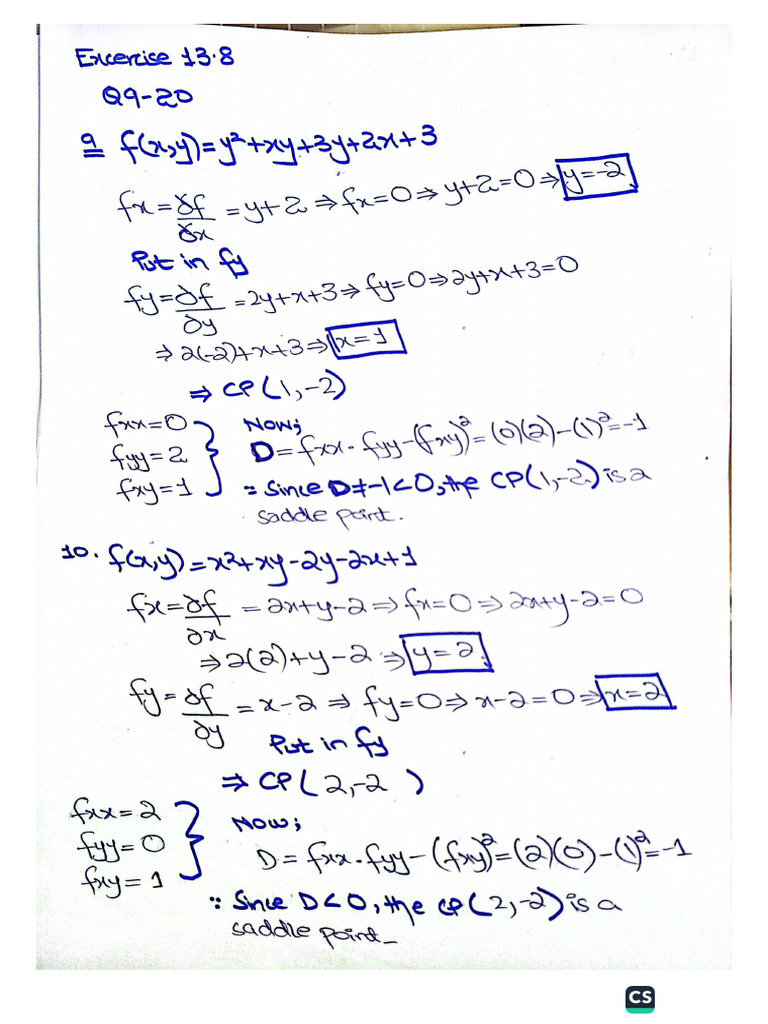 Excercise 13.8
Q9-20
9 f(x,y)=y²+xy+3y+2x+3
fx=∂f/∂x=y+2⇒fx=0⇒y+2=0⇒y=-2
Put in fy
fy=∂f/∂y=2y+x+3⇒fy=0⇒2y+x+3=0
⇒2(-2)+x+3⇒x=1
⇒CP(1,-2)
fxx=0
fyy=2
fxy=1
Now;
D=fxx·fyy-(fxy)²=(0)(2)-(1)²=-1
∵ Since D=-1<0, the CP(1,-2) is a
saddle point.
10. f(x,y)=x²+xy-2y-2x+1
fx=∂f/∂x=2x+y-2⇒fx=0⇒2x+y-2=0
⇒2(2)+y-2⇒y=2
fy=∂f/∂y=x-2⇒fy=0⇒x-2=0⇒x=2
Put in fy
⇒CP(2,-2)
fxx=2
fyy=0
fxy=1
Now;
D=fxx·fyy-(fxy)²=(2)(0)-(1)²=-1
∵ Since D<0, the CP(2,-2) is a
saddle point_
CS